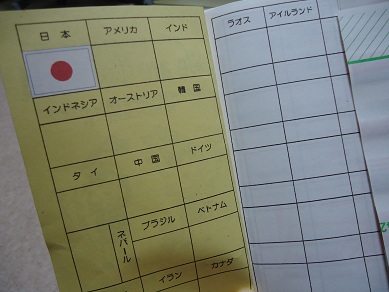 日本 アメリカ インド
インドネシア オーストリア 韓国
タイ 中国 ドイツ
ネパール ブラジル ベトナム
イラン カナダ
ラオス アイルランド